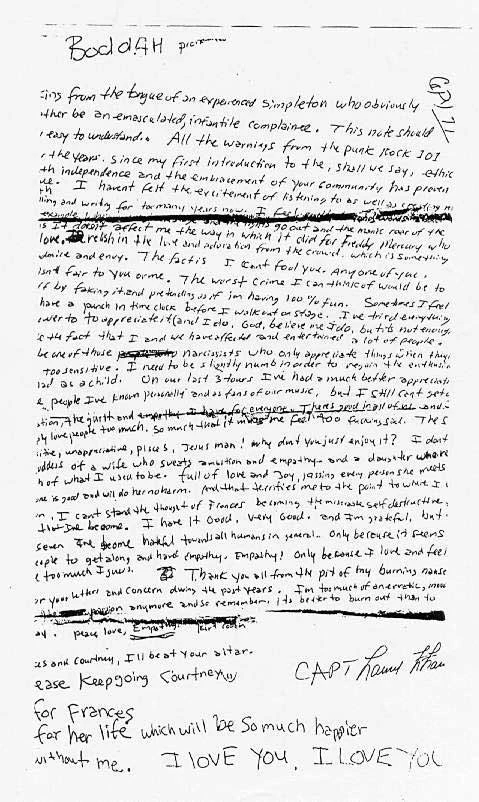 BoddAH
ing from the tongue of an experienced simpleton who obviously
ther be an emasculated, infantile complainee. This note should
easy to understand. All the warnings from the punk Rock 101
the years. Since my first introduction to the, shall we say, ethic
th independence and the embracement of your community has proven
ue. I havent felt the excitement of listening to as well as creating
lling and writing for too many years now. I feel
go out and the manic roar of the
is It doesnt affect me the way in which it did for Freddy Mercury who
love, relish in the love and adoration from the crowd. which is something
admire and envy. The fact is I Cant fool you. Any one of you.
isnt fair to you or me. The worst crime I can think of would be to
ff by faking it and pretending as if im having 100% fun. Sometimes I feel
have a punch in time clock before I walk out on stage. I've tried everything
ower to to appreciate it (and I do. God, believe me I do, but its not enough
te the fact that I and we have affected and entertained a lot of people.
be one of those narcissists who only appreciate things when they
too sensitive. I need to be slightly numb in order to regain the enthusia
had as a child. On our last 3 tours I've had a much better appreciati
e people I've known personally and as fans of our music, but I still cant get o
ation, the guilt and empathy I have for everyone. Theres good in all of us and
ply love people too much. So much that it makes me feel too fucking sad. The s
itive, unappreciative, pisces, Jesus man! why dont you just enjoy it? I dont
oddess of a wife who sweats ambition and empathy and a daughter who
h of what I used to be. full of love and Joy, kissing every person she meets
one is good and will do her no harm. And that terrifies me to the point to where I
n. I cant stand the thought of Frances becoming the miserable self destructive,
that Ive become. I have it Good, very Good. and Im grateful, but
seven Ive become hateful towards all humans in general. Only because it seems
eople to get along and have empathy. Empathy! Only because I love and feel
e too much I guess. Thank you all from the pit of my burning nause
or your letters and concern during the past years. I'm too much of an erratic, moo
passion anymore and so remember, its better to burn out than to
ay. peace, love, Empathy. Kurt Cobain
ces and Courtney, I'll be at your altar.
ease Keep going Courtney
for Frances
for her life which will be So much happier
without me. I LOVE YOU. I LOVE YOU